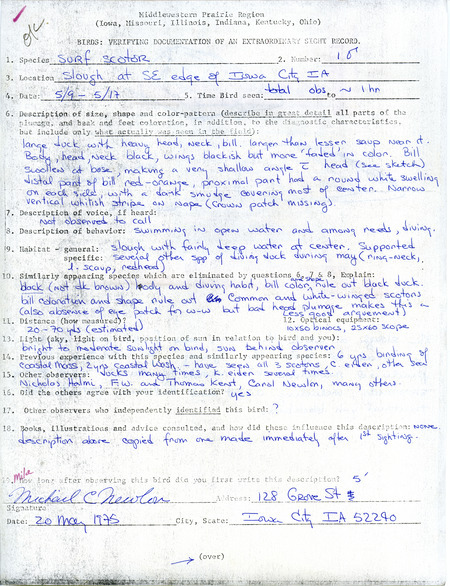 Middlewestern Prairie Region
(Iowa, Missouri, Illinois, Indiana, Kentucky, Ohio)
BIRDS: VERIFYING DOCUMENTATION OF AN EXTRAORDINARY SIGHT RECORD.
1. Species SURF SCOTOR 2. Number: 1♂
3. Location Slough at SE edge of Iowa City IA
4. Date: 5/9 - 5/17 5. Time Bird seen: total obs. to ~ 1 hr
6. Description of size, shape and color-pattern (describe in great detail all parts of the
plumage, and beak and feet coloration, in addition, to the diagnostic characteristics,
but include only what actually was seen in the field):
large duck with heavy head, neck, bill, larger than lesser scaup near it.
Body, head, neck black, wings blackish but more faded in color. Bill
swollen at base, making a very shallow angle c̄ head (see sketch)
distal part of bill red-orange, proximal part had a round white swelling
on each side, with a dark smudge covering most of center. Narrow
vertical whitish stripe on nape (crown patch missing).
7. Description of voice, if heard:
Not observed to call
8. Description of behavior: swimming in open water and among reeds, diving.
9. Habitat - general: slough with fairly deep water at center. Supported
specific: several other spp of diving duck during may (ring-neck,
l. scaup, redhead)
10. Similarly appearing species which are eliminated by questions 6, 7 & 8, Explain:
black (not dk brown) body and diving habit, bill color rule out black duck.
bill coloration and shape rule out Common and white-winged scoters
(also absence of eye patch for w-w but bad head plumage makes this a
less good arguement)
11. Distance (how measured)? 12. Optical equipment:
20-70 yds (estimated) 10x50 binocs, 25x60 scope
13. Light (sky, light on bird, position of sun in relation to bird and you):
bright to moderate sunlight on bird, sun behind observer
14. Previous experience with this species and similarly appearing species: 6 yrs birding of
coastal Mass, 2 yrs coastal Wash. - have seen all 3 scotors, C. eider, other sea
ducks many times, K. eider several times.
15. Other observers:
Nicholas Halmi, F.W. and Thomas Kent, Carol Newlon, many others.
16. Did the others agree with your identification? yes
17. Other observers who independently identified this bird: ?
18. Books, illustrations and advice consulted, and how did these influence this description: none.
description above copied from one made immediately after 1st sighting.
How long after observing this bird did you first write this description? 5'
Michael C Newlon Address: 128 Grove St
Signature
Date: 20 May 1975 City, State: Iowa City IA 52240
(over)